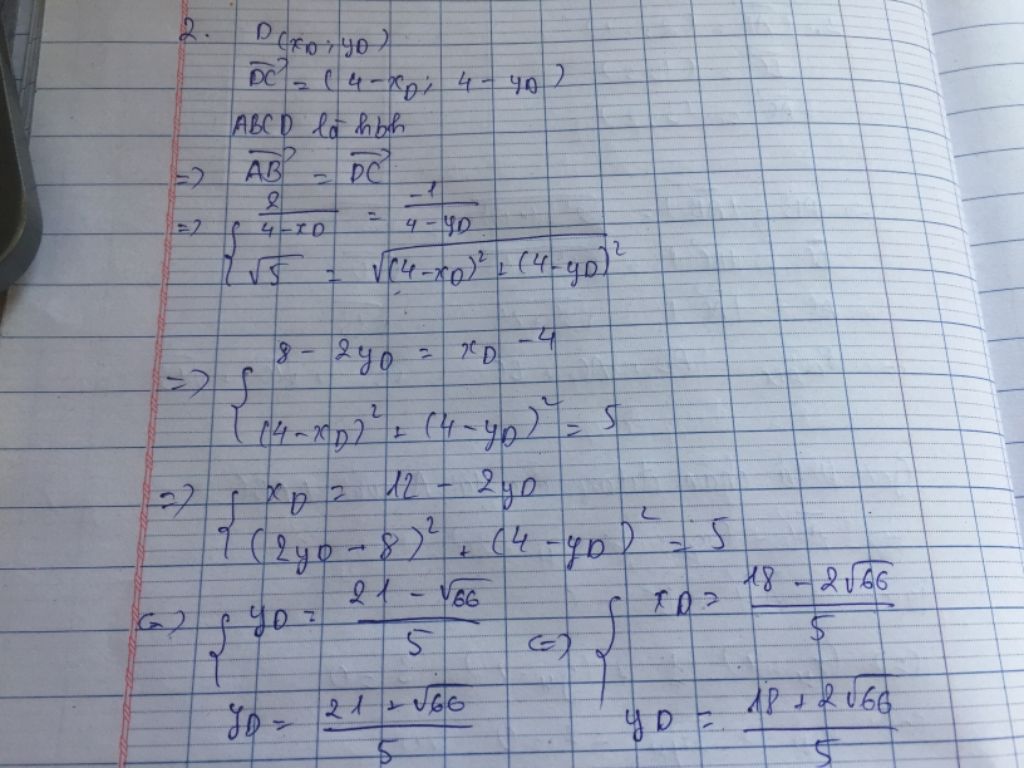 2. D(x_D; y_D)
\overrightarrow{DC} = (4 - x_D; 4 - y_D)
ABCD là hbh
=> \overrightarrow{AB} = \overrightarrow{DC}
=> { \frac{2}{4 - x_D} = \frac{-1}{4 - y_D}
\sqrt{5} = \sqrt{(4 - x_D)^2 + (4 - y_D)^2}
=> { 8 - 2y_D = x_D - 4
(4 - x_D)^2 + (4 - y_D)^2 = 5
=> { x_D = 12 - 2y_D
(2y_D - 8)^2 + (4 - y_D)^2 = 5
<=> { y_D = \frac{21 - \sqrt{66}}{5} <=> { x_D = \frac{18 - 2\sqrt{66}}{5}
y_D = \frac{21 + \sqrt{66}}{5} y_D = \frac{18 + 2\sqrt{66}}{5}